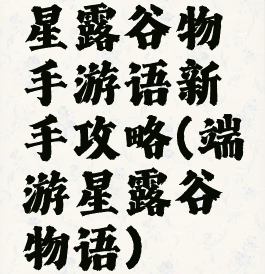 星露谷物
手游语新
手攻略(端
游星露谷
物语)